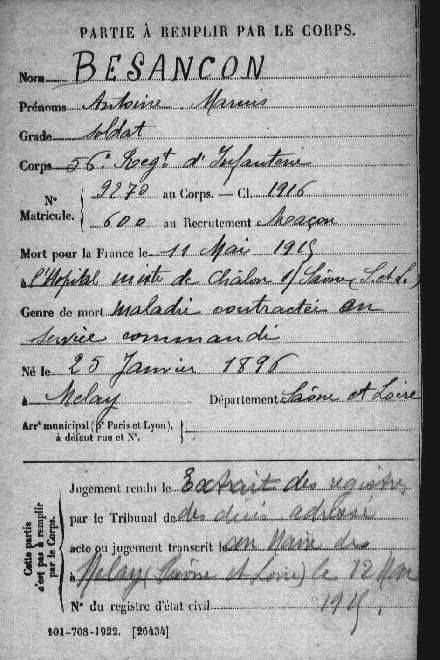 PARTIE À REMPLIR PAR LE CORPS.
Nom BESANCON
Prénoms Antoine Marius
Grade soldat
Corps 56e Regt d'Infanterie
N° Matricule. 9270 au Corps. — Cl. 1916
600 au Recrutement Macon
Mort pour la France le 11 Mai 1915
à l'Hopital mixte de Châlon s/ Saône (S. et L.)
Genre de mort maladie contractée en
service commandé
Né le 25 Janvier 1896
à Melay Département Saône et Loire
Arrt municipal (pr Paris et Lyon), à défaut rue et N°.
Cette partie n'est pas à remplir par le Corps.
Jugement rendu le Extrait des registres
par le Tribunal de des décès adressé
acte ou jugement transcrit le au Maire de
à Melay (Saône et Loire) le 12 Mai
N° du registre d'état civil 1915
101-708-1922. [26434]